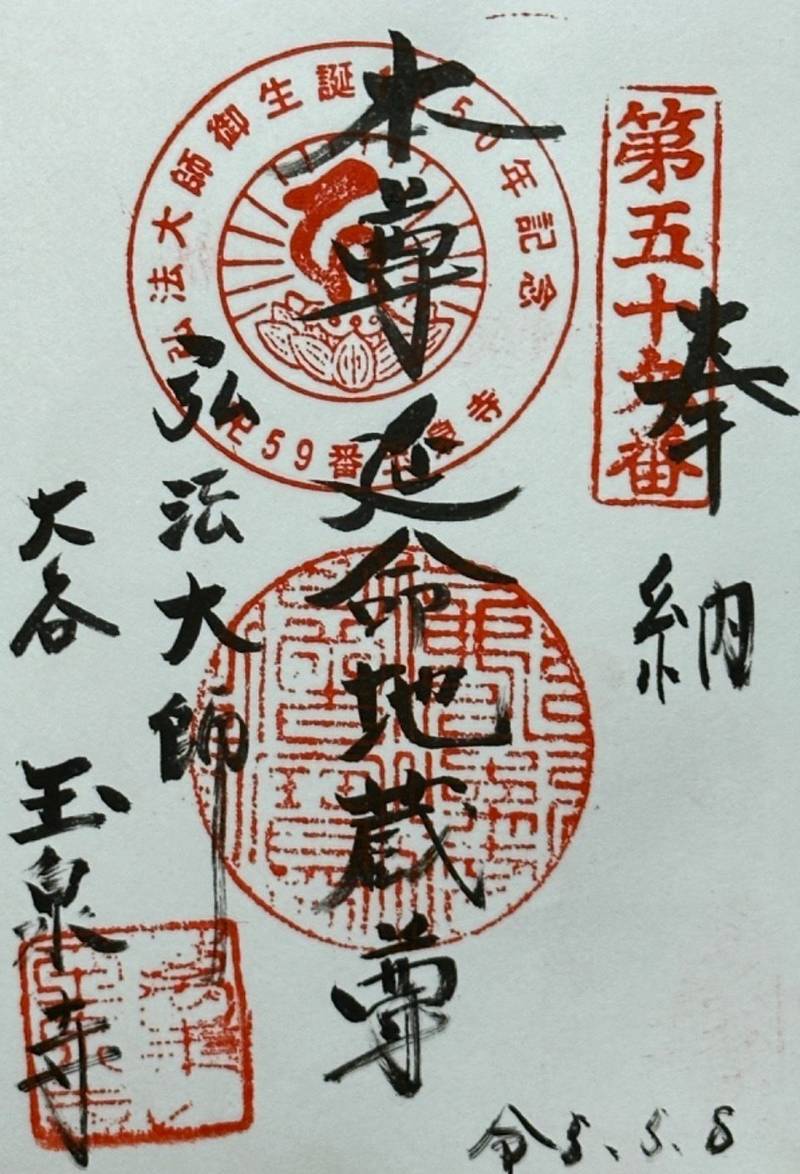 第五十九番
奉納
本尊 延命地蔵尊
弘法大師
大谷 玉泉寺
弘法大師御生誕1250年記念
59番玉泉寺
令5.5.8